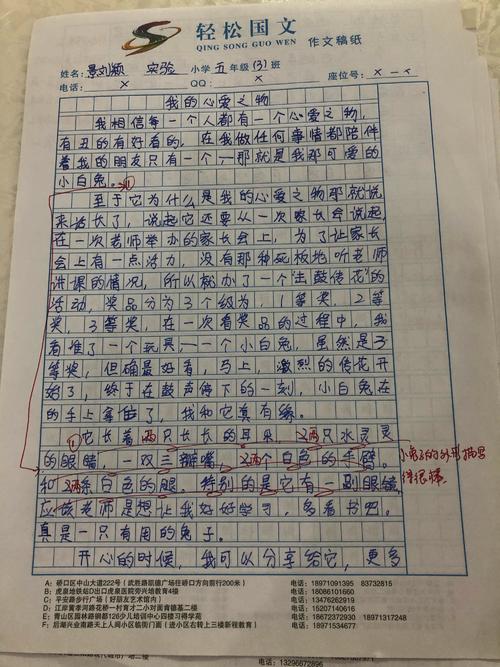 轻松国文
QING SONG GUO WEN
作文稿纸
姓名: 实验 小学 五 年级 (3) 班
电话: × QQ: × 座位号: ×-×
我的心爱之物
我相信每一个人都有一个心爱之物,
有丑的有好看的,在我做任何事情都陪伴
着我的朋友只有一个,那就是我那可爱的
小白兔。
至于它为什么是我的心爱之物那就说
来话长了,说起它还要从一次家长会说起,
在一次老师举办的家长会上,为了让家长
会上有一点活力,没有那种死板地听老师
讲课的情况,所以就办了一个"击鼓传花"的
活动,奖品分为3个级为,1等奖,2等
奖,3等奖,在一次看奖品的过程中,我
看准了一个玩具,一个小白兔,虽然是3
等奖,但确是好看,马上,激烈的传花开
始了,终于在鼓声停下的一刻,小白兔在
的手上拿住了,我和它真有缘。
①它长着两只长长的耳朵,两只水灵灵
的眼睛,一双三瓣嘴,两个白色的手臂。
和两条白色的腿。特别的是它有一副眼镜,
应该老师是想让我好好学习,多看书吧。
真是一只有用的兔子。
开心的时候,我可以分享给它,更多
小兔子的外形描写
很棒。
A: 桥口区中山大道222号(武胜路凯德广场往桥口方向前行200米) 电话: 18971091395 83732815
B: 虎泉地铁站D出口虎泉医院旁兴培教育4楼 电话: 18086101660
C: 平安路步行广场(好朋友艺术馆内) 电话: 13476262919
D: 江岸黄孝河路花桥一村育才二小对面肯德基二楼 电话: 15207140616
E: 青山区园林路钢都126少儿培训中心四楼习得学苑 电话: 18672630972 18971317248
F: 后湖兴业南路天上人间小区临街门面(进小区右转上三楼新程教育) 电话: 18971534677